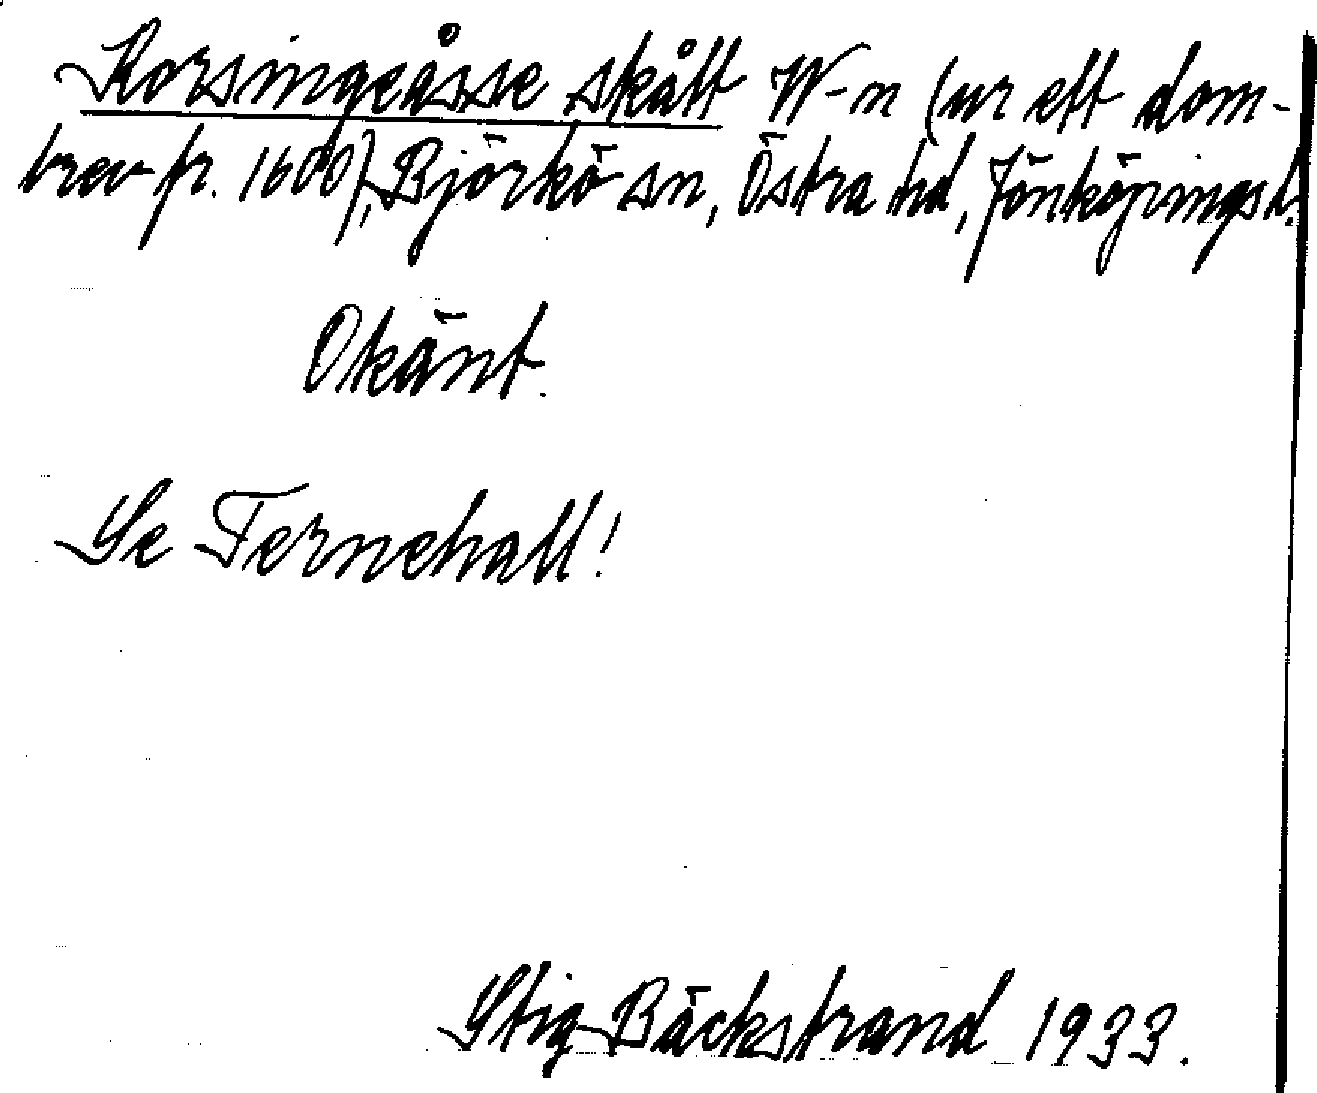 Korsingeåsse skått W-n (ur ett dom-
brev fr. 1600), Björkö sn, Östra hd, Jönköpingsl.
Okänt.
Se Fernehall!
Stig Bäckstrand 1933.